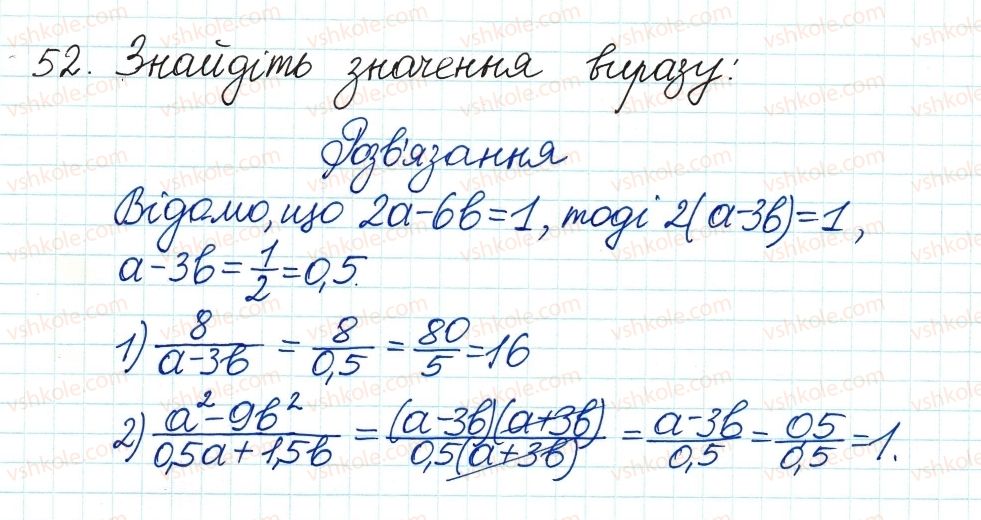 52. Знайдіть значення виразу:
Розв'язання
Відомо, що 2a-6b=1, тоді 2(a-3b)=1,
a-3b=1/2=0,5.
1) 8/(a-3b) = 8/0,5 = 80/5 = 16
2) (a²-9b²)/(0,5a+1,5b) = (a-3b)(a+3b)/0,5(a+3b) = (a-3b)/0,5 = 05/0,5 = 1.
vshkole.com